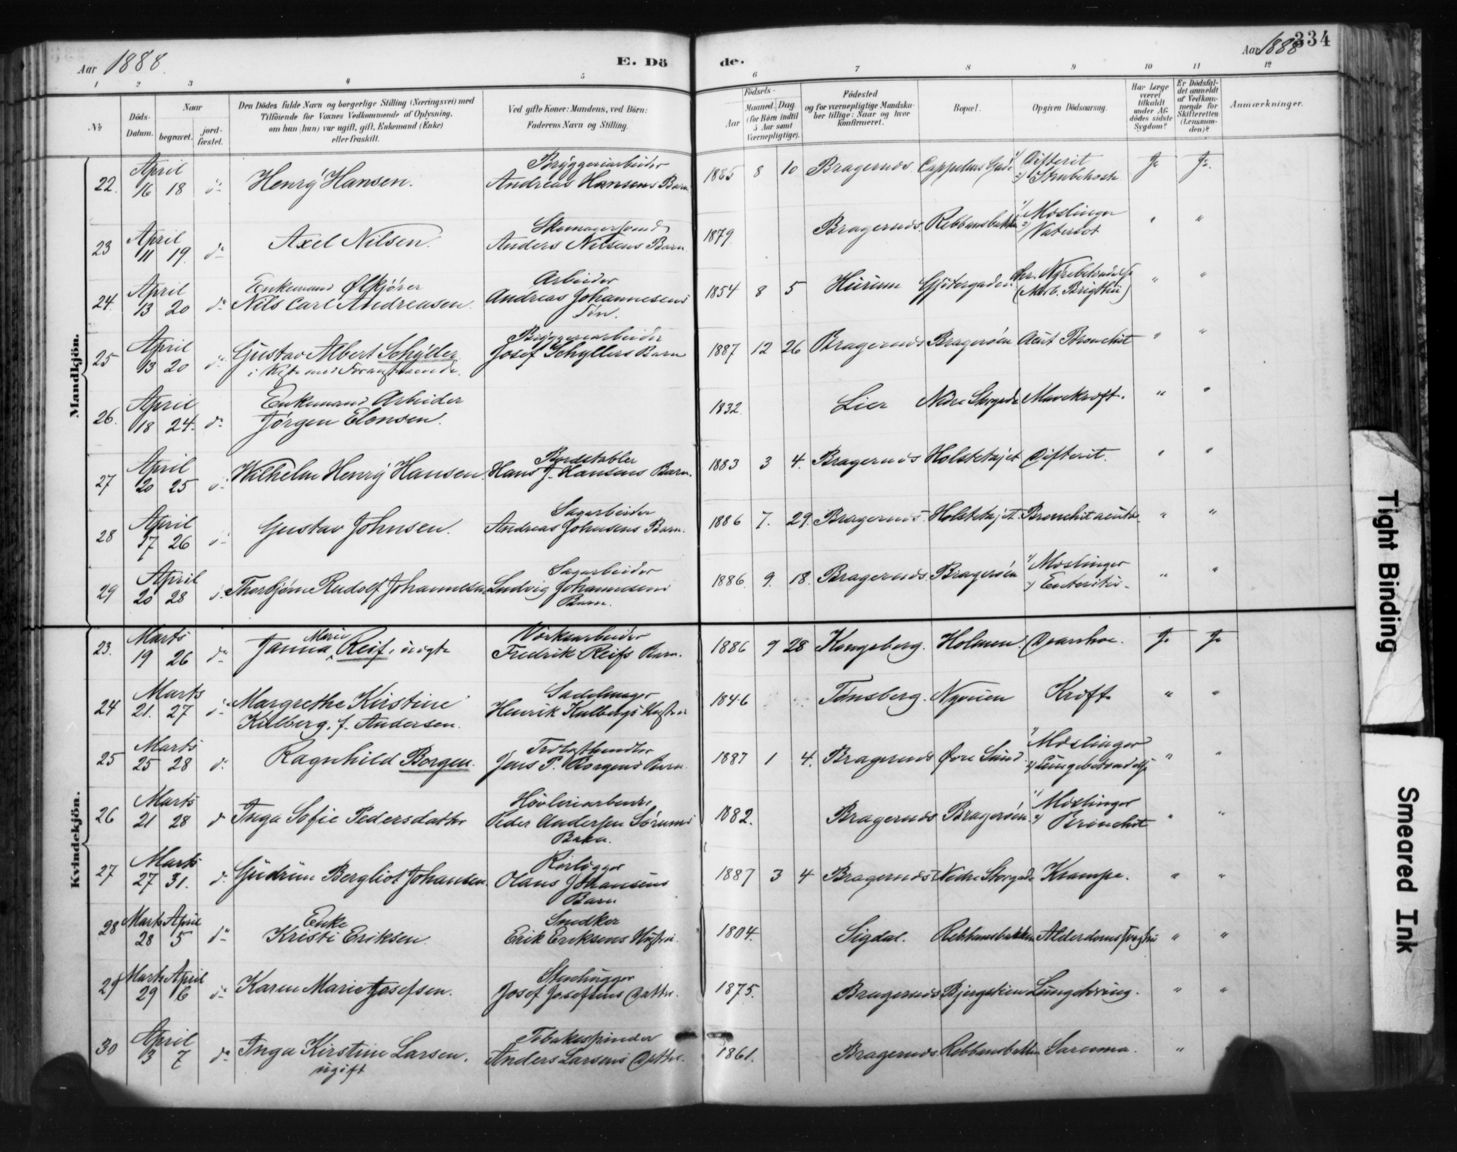 Aar 1888. E. Dö de. Aar 1888 334
1 2 3 4 5 6 7 8 9 10 11 12
№ Döds-Datum. Naar begravet. jordfæstet. Den Dödes fulde Navn og borgerlige Stilling (Næringsvei) med Tilföiende for Voxnes Vedkommende af Oplysning, om han (hun) var ugift, gift, Enkemand (Enke) eller fraskilt. Ved gifte Koner: Mandens, ved Börn: Faderens Navn og Stilling. Födsels- Aar Maaned. Dag. (for Börn indtil 5 Aar samt Værnepligtige). Födested og for værnepligtige Mandskaber tillige: Naar og hvor Konfirmeret. Bopæl. Opgiven Dödsaarsag. Har Læge været tilkaldt under Afdödes sidste Sygdom? Er Dödsfaldet anmeldt af Vedkommende for Skifteretten (Lensmanden)? Anmærkninger.
Mandkjön.
22. April 16 18 do Henry Hansen. Bryggeriarbeider Andreas Hansens Barn 1885 8 10 Bragernes. Cappelens Gaard 1) Difterit 2) Strubehoste Ja Ja
23 April 11 19. do Axel Nilsen. Skomagersvend Anders Nilsens Barn 1879. Bragernes. Rebbansbakken 1) Meslinger 2) Vatersot " "
24. April 13 20 do Enkemand Ølkjører Nils Carl Andreasen. Arbeider Andreas Johannesens Søn. 1854 8 5 Hurum Gjetergaden chr. Nyrebetændelse (Morb. Brightii) " "
25 April 13 20 do Gustav Albert Schyller Bryggeriarbeider Josef Schyllers Barn 1887 12 26 Bragernes Bragerøen Acut Bronchit " "
26. April 18 24. do Enkemand Arbeider Jørgen Elensen. 1832 Lier Nedre Storgade Mavekræft. " "
27 April 20 25 do Wilhelm Henry Hansen. Bordstabler Hans J. Hansens Barn. 1883 3 4. Bragernes Holstehøjet Difterit. " "
28 April 17 26 do Gustav Johnsen. Sagarbeider Andreas Johnsens Barn. 1886 7. 29. Bragernes Holstehøjet. Bronchit acuta " "
29 April 20 28 do Thorbjørn Rudolf Johannesen Sagarbeider Ludvig Johannesens Barn. 1886. 9. 18. Bragernes Bragerøen 1) Meslinger 2) Enteritis. " "
Kvindekjön.
23. Marts 19 26 do Janna Marie Reif, uægte Værksarbeider Fredrik Reifs Barn. 1886 9 28 Kongsberg. Holmen. Diarrhoe. Ja Ja
24 Marts 21. 27 do Margrethe Kirstine Kulberg, f. Andersen. Sadelmager Henrik Kulbergs Hustru 1846 Tønsberg. Nyveien Kræft " "
25 Marts 25 28 do Ragnhild Borgen. Trælasthandler Jens P. Borgens Barn 1887 1 4. Bragernes Øvre Sund 1) Meslinger 2) Lungebetændelse " "
26 Marts 21 28 do Inga Sofie Pedersdatter Høvleriarbeider Peder Andersen Sørums Barn. 1882. Bragernes Bragerøen 1) Meslinger 2) Bronchit " "
27 Marts 27 31. do Gudrun Bergliot Johansen. Rørlægger Olaus Johansens Barn 1887 3 4 Bragernes Nedre Storgade Krampe. " "
28 Marts 28 April 5 do Enke Kristi Eriksen. Snedker Erik Eriksens Hustru 1804. Sigdal. Rebbansbakken Alderdomssvaghed " "
29 Marts 29 April 6 do Karen Marie Josefsen. Stenhugger Josef Josefsens Datter. 1875. Bragernes Bjergstien Lungetæring. " "
30 April 3 7 do Inga Kirstine Larsen. ugift Tobaksspinder Anders Larsens Datter. 1861. Bragernes Rebbansbakken Sarcoma. "
Tight Binding
Smeared Ink